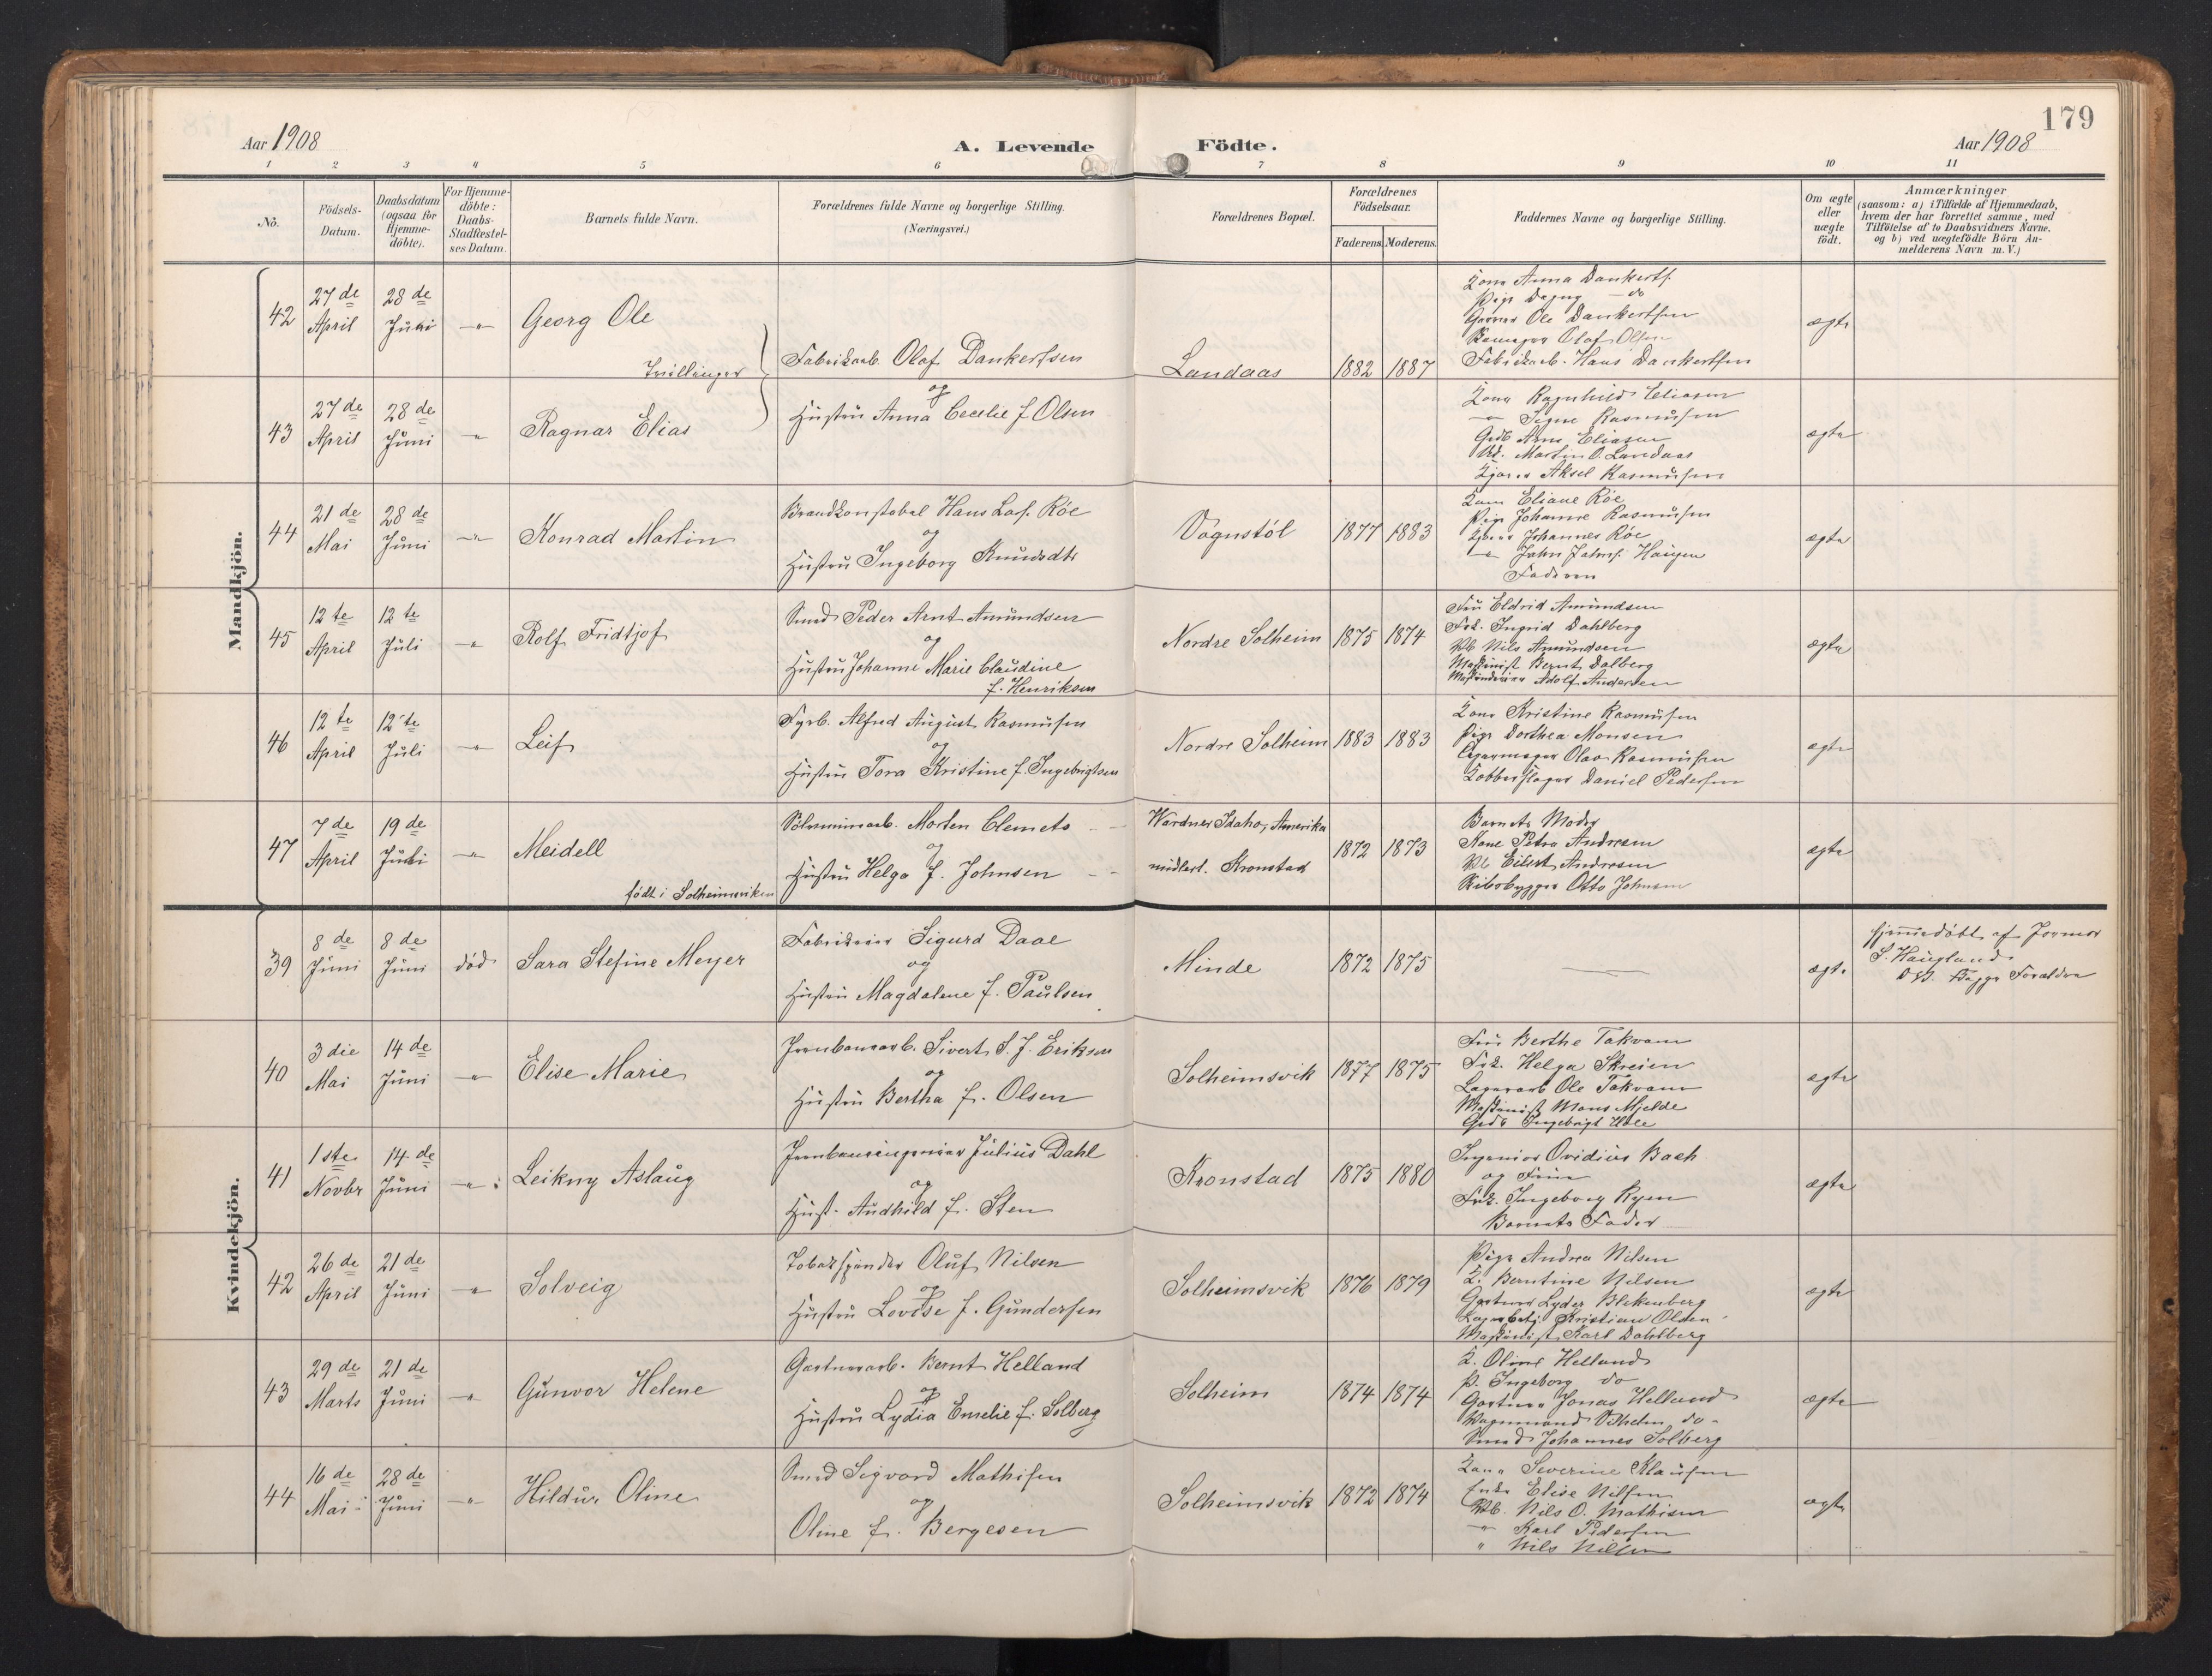 179
Aar 1908
A. Levende Födte.
Aar 1908
1 2 3 4 5 6 7 8 9 10 11
No.
Födsels-Datum.
Daabsdatum (ogsaa for Hjemme-döbte).
For Hjemme-döbte: Daabs-Stadfæstel-ses Datum.
Barnets fulde Navn.
Forældrenes fulde Navne og borgerlige Stilling.
(Næringsvei.)
Forældrenes Bopæl.
Forældrenes Födselsaar.
Faderens. Moderens.
Faddernes Navne og borgerlige Stilling.
Om ægte eller uægte födt.
Anmærkninger
(saasom: a) i Tilfælde af Hjemmedaab,
hvem der har forrettet samme, med
Tilföielse af to Daabsvidners Navne.
og b) ved uægtefödte Börn An-
melderens Navn m. V.)
Mandkjön.
42
27 de April
28 de Juni
"
Georg Ole
Tvillinger
Fabrikarb. Olaf Dankertsen
og
Hustru Anna Cecilie f. Olsen
Landaas
1882 1887
Kone Anna Dankerts.
Pige Dagny do
Ole Dankertsen
Olaf Olsen
Fabrikarb. Hans Dankertsen
ægte
43
27 de April
28 de Juni
"
Ragnar Elias
Kone Ragnhild Eliasen
" Signe Rasmussen
Arne Eliasen
Martin O. Landaas
Aksel Rasmussen
ægte
44
21 de Mai
28 de Juni
"
Konrad Martin
Brandkonstabel Hans Las. Röe
og
Hustru Ingeborg Knudsdtr
Vognstöl
1877 1883
Kone Eliane Röe
Pige Johanne Rasmussen
Johannes Röe
" John Johns. Haugen
Faderen
ægte
45
12 te April
12 te Juli
"
Rolf Fridtjof
Smed Peder Arnt Amundsen
og
Hustru Johanne Marie Claudine
f. Henriksen
Nordre Solheim
1875 1874
Fru Eldrid Amundsen
Frk. Ingrid Dahlberg
Nils Amundsen
Maskinist Bernt Dalberg
Adolf Andersen
ægte
46
12 te April
12 te Juli
"
Leif
Fyrb. Alfred August Rasmussen
og
Hustru Tora Kristine f. Ingebrigtsen
Nordre Solheim
1883 1883
Kone Kristine Rasmussen
Pige Dorthea Monsen
Olav Rasmussen
Kobberslager Daniel Pedersen
ægte
47
7 de April
19 de Juli
"
Meidell
födt i Solheimsviken
Sölvminearb. Morten Clemets
og
Hustru Helga f. Johnsen
Wardner Idaho, Amerika
midlert. Kronstad
1872 1873
Barnets Moder
Kone Petra Andresen
Eilert Andresen
Skibsbygger Otto Johnsen
ægte
Kvindekjön.
39
8 de Juni
8 de Juni
död
Sara Stefine Meyer
Sigurd Daae
og
Hustru Magdalene f. Paulsen
Minde
1872 1875
ægte
Hjemmedöbt af Jormor
S. Haugland.
Begge Forældre
40
3 die Mai
14 de Juni
"
Elise Marie
Jernbanearb. Sivert S. J. Eriksen
og
Hustru Bertha f. Olsen
Solheimsvik
1877 1875
Fru Berthe Takvam
Frk. Helga Skreien
Lagerarb Ole Takvam
Maskinist Mons Mjelde
Ingebrigt
ægte
41
1 ste Novbr
14 de Juni
"
Leikny Aslaug
Jernbaneingeniør Julius Dahl
og
Hust. Audhild f. Sten
Kronstad
1875 1880
Ingeniør Ovidius Bach
og Frue
Frk. Ingeborg Ryen
Barnets Fader
ægte
42
26 de April
21 de Juni
"
Solveig
Tobakspinder Oluf Nilsen
og
Hustru Lovise f. Gundersen
Solheimsvik
1876 1879
Pige Andrea Nilsen
K. Berntine Nilsen
Gartner Lyder Blekenberg
Kristian Olsen
Maskinist Karl Dahlberg
ægte
43
29 de Marts
21 de Juni
"
Gunvor Helene
Gartnerarb. Bernt Helland
og
Hustru Lydia Emelie f. Solberg
Solheim
1874 1874
K. Oline Helland
P. Ingeborg do
Gartner Jonas Helland
Vognmand Vilhelm do
Smed Johannes Solberg
ægte
44
16 de Mai
28 de Juni
"
Hildur Oline
Smed Sigvard Mathisen
og
Oline f. Bergesen
Solheimsvik
1872 1874
Kone Severine Klausen
Enke Elise Nilsen
Nils O. Mathisen
" Karl Pedersen
" Nils Nilsen
ægte